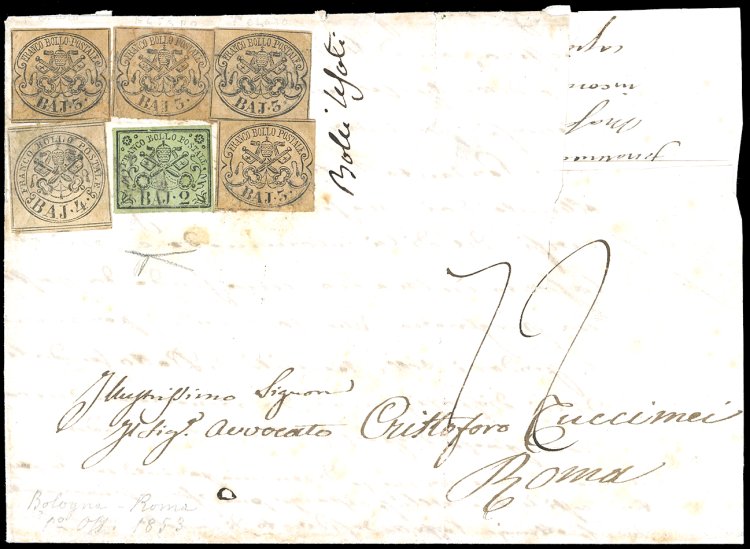 FRANCO BOLLO POSTALE
BAJ. 3.
FRANCO BOLLO POSTALE
BAJ. 3.
FRANCO BOLLO POSTALE
BAJ. 3.
FRANCO BOLLO POSTALE
BAJ. 4.
FRANCO BOLLO POSTALE
BAJ. 2
FRANCO BOLLO POSTALE
BAJ. 3.
Illustrissimo Signore
Il Sig.r Avvocato Cristoforo Tuccimei
Roma
Bologna - Roma
1853